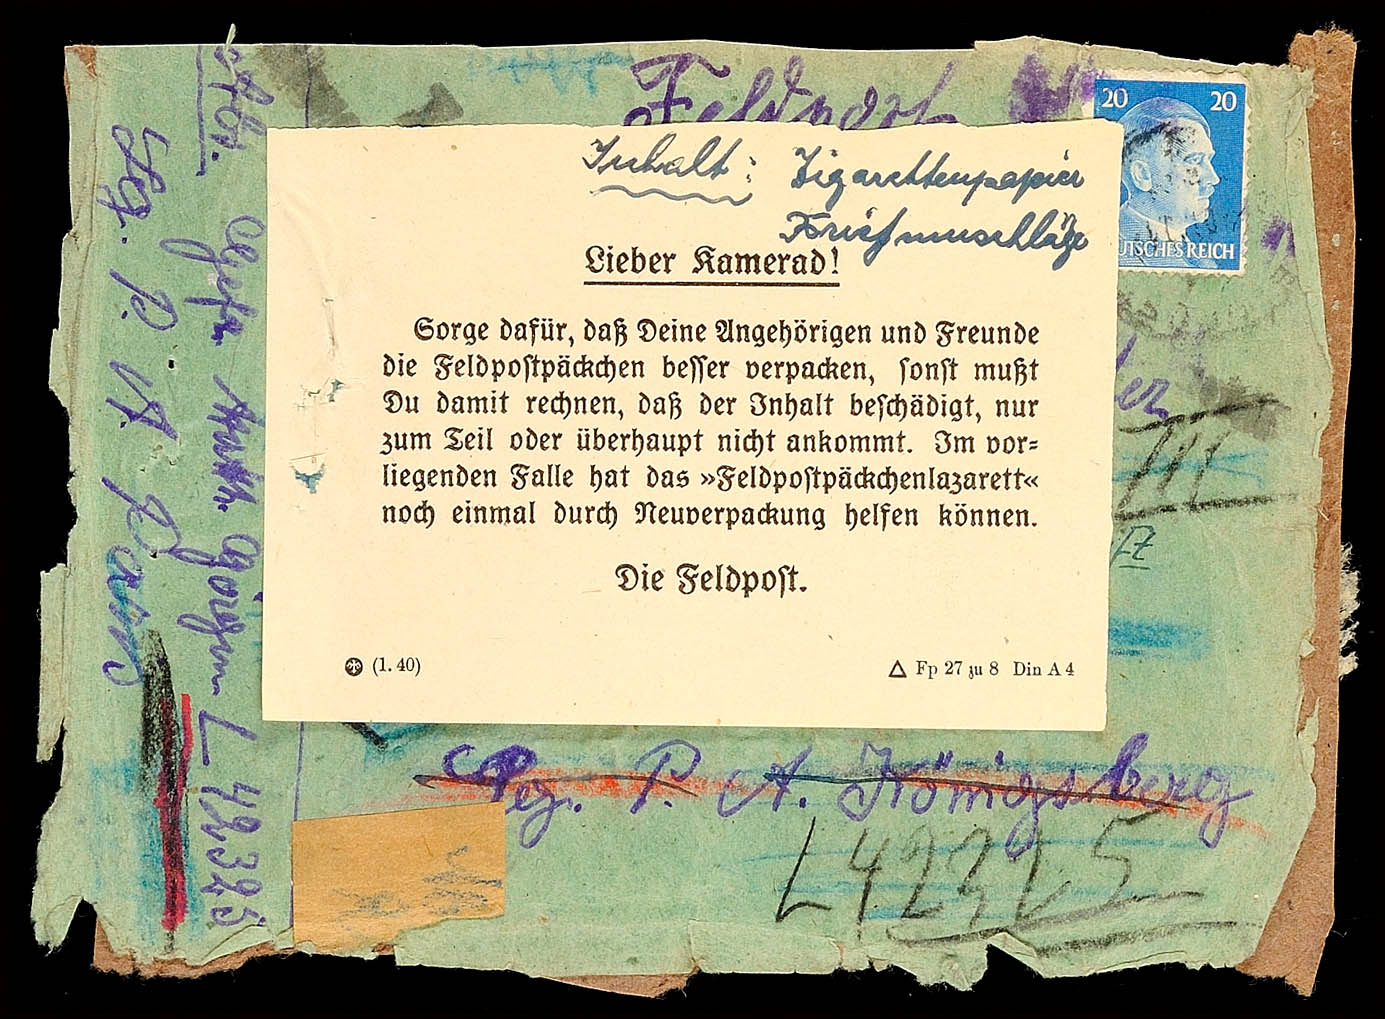 Feldpost
20 20
DEUTSCHES REICH
Inhalt: Zigarettenpapier
Briefumschläge
Lieber Kamerad!
Sorge dafür, daß Deine Angehörigen und Freunde
die Feldpostpäckchen besser verpacken, sonst mußt
Du damit rechnen, daß der Inhalt beschädigt, nur
zum Teil oder überhaupt nicht ankommt. Im vor=
liegenden Falle hat das »Feldpostpäckchenlazarett«
noch einmal durch Neuverpackung helfen können.
Die Feldpost.
(1. 40)
Fp 27 zu 8 Din A 4
P. A. Königsberg
L 49325
P. A. Paris